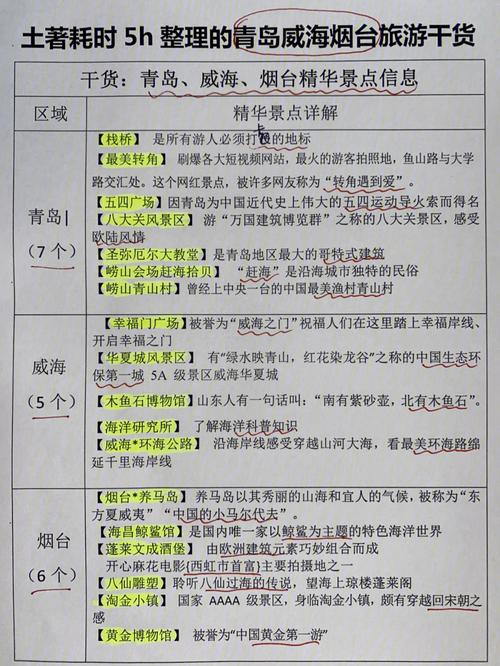 土著耗时 5h 整理的青岛威海烟台旅游干货
干货：青岛、威海、烟台精华景点信息
区域
精华景点详解
青岛
（7 个）
【栈桥】 是所有游人必须打卡的地标
【最美转角】 刷爆各大短视频网站，最火的游客拍照地，鱼山路与大学
路交汇处。这个网红景点，被许多网友称为“转角遇到爱”。
【五四广场】 因青岛为中国近代史上伟大的五四运动导火索而得名
【八大关风景区】 游“万国建筑博览群”之称的八大关景区，感受
欧陆风情
【圣弥厄尔大教堂】 是青岛地区最大的哥特式建筑
【崂山会场赶海拾贝】 “赶海”是沿海城市独特的民俗
【崂山青山村】 曾经上中央一台的中国最美渔村青山村
威海
（5 个）
【幸福门广场】 被誉为“威海之门”祝福人们在这里踏上幸福岸线、
开启幸福之门
【华夏城风景区】 有“绿水映青山，红花染龙谷”之称的中国生态环
保第一城 5A 级景区威海华夏城
【木鱼石博物馆】 山东人有一句话叫：“南有紫砂壶，北有木鱼石”。
【海洋研究所】 了解海洋科普知识
【威海*环海公路】 沿海岸线感受穿越山河大海，看最美环海路绵
延千里海岸线
烟台
（6 个）
【烟台*养马岛】 养马岛以其秀丽的山海和宜人的气候，被称为“东
方夏威夷” “中国的小马尔代夫”。
【海昌鲸鲨馆】 是国内唯一家以鲸鲨为主题的特色海洋世界
【蓬莱文成酒堡】 由欧洲建筑元素巧妙组合而成
开心麻花电影{西虹市首富}主要拍摄地之一
【八仙雕塑】 聆听八仙过海的传说，望海上琼楼蓬莱阁
【淘金小镇】 国家 AAAA 级景区，身临淘金小镇，颇有穿越回宋朝之
感
【黄金博物馆】 被誉为“中国黄金第一游”